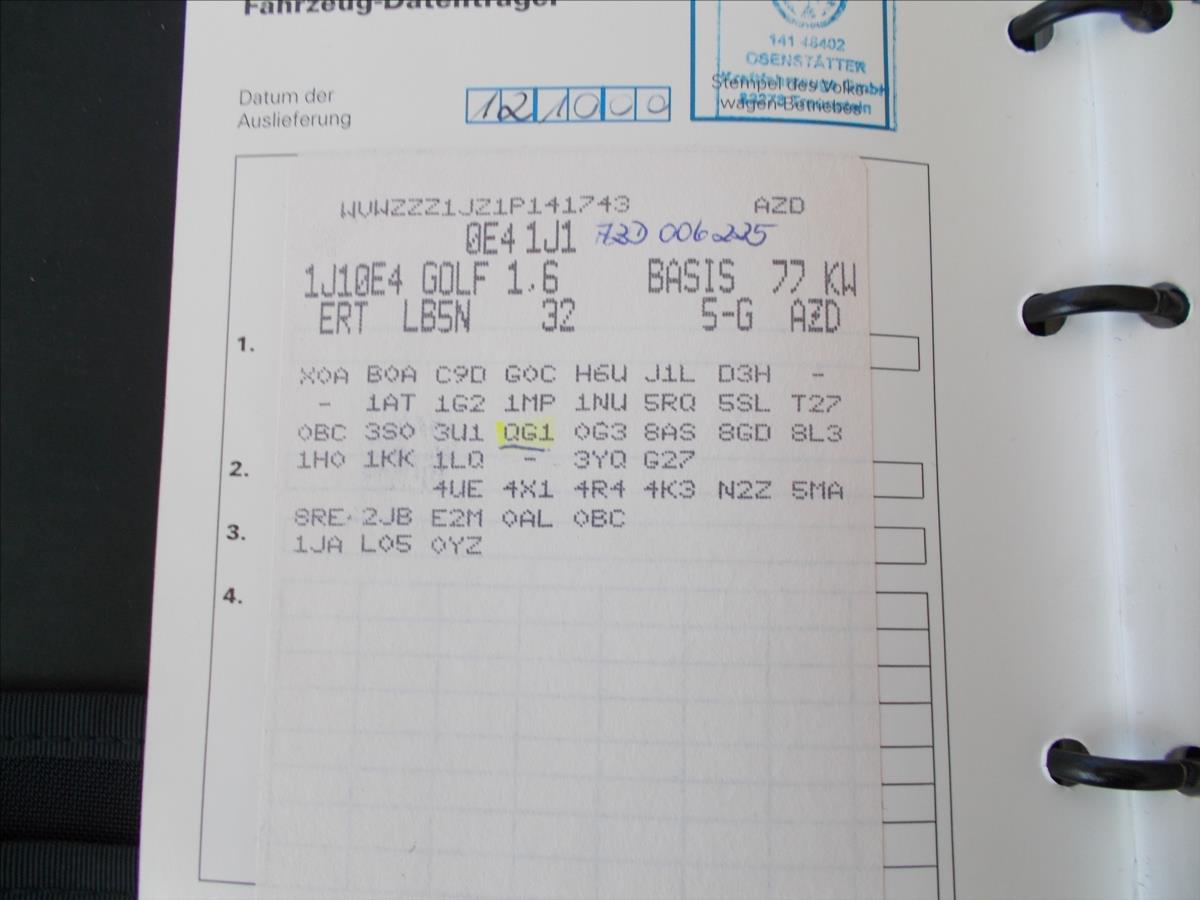 Fahrzeug-Datenträger
141 48402
OSENSTÄTTER
Kraftfahrzeuge GmbH
Stempel des Volks-
wagen-Betriebes
Datum der
Auslieferung
121000
WVWZZZ1JZ1P141743 AZD
0E4 1J1 AZD 006225
1J10E4 GOLF 1,6 BASIS 77 KW
ERT LB5N 32 5-G AZD
1.
X0A B0A C9D G0C H6U J1L D3H -
- 1AT 1G2 1MP 1NU 5RQ 5SL T27
0BC 3S0 3U1 QG1 0G3 8AS 8GD 8L3
2.
1H0 1KK 1LQ - 3YQ G27
4UE 4X1 4R4 4K3 N2Z 5MA
3.
8RE 2JB E2M 0AL 0BC
1JA L05 0YZ
4.